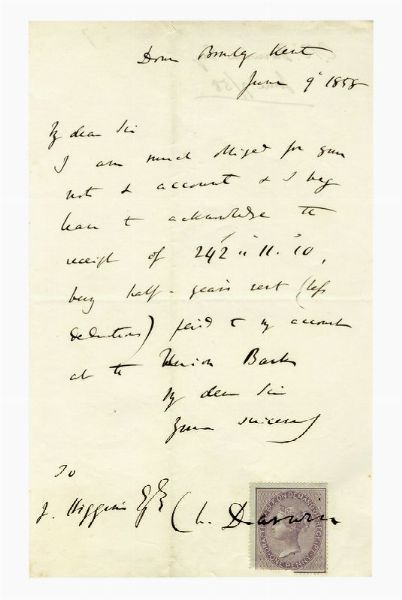 Down Bromley Kent
June 9th 1858
My dear Sir
I am much obliged for your
note & account & I beg
leave to acknowledge the
receipt of 242 " 11. 10,
being half-year's rent (less
deductions) paid to my account
at the Union Bank
My dear Sir
Yours sincerely
To
J. Higgins Esq
Ch. Darwin
DRAFT PAYABLE ON DEMAND OR RECEIPT
ONE PENNY